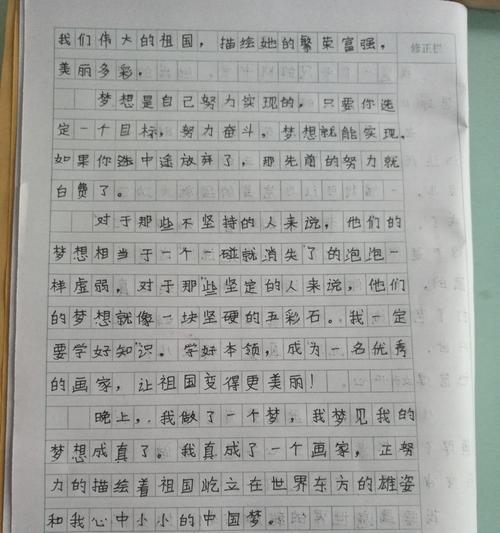 我们伟大的祖国，描绘她的繁荣富强，
修正栏
美丽多彩。
梦想是自己努力实现的，只要你选
定一个目标，努力奋斗，梦想就能实现。
如果你选中途放弃了，那先前的努力就
白费了。
对于那些不坚持的人来说，他们的
梦想相当于一个一碰就消失了的泡泡一
样虚弱，对于那些坚定的人来说，他们
的梦想就像一块坚硬的五彩石。我一定
要学好知识。学好本领，成为一名优秀
的画家，让祖国变得更美丽！
晚上，我做了一个梦，我梦见我的
梦想成真了。我真成了一个画家，正努
力的描绘着祖国屹立在世界东方的雄姿
和我心中小小的中国梦。